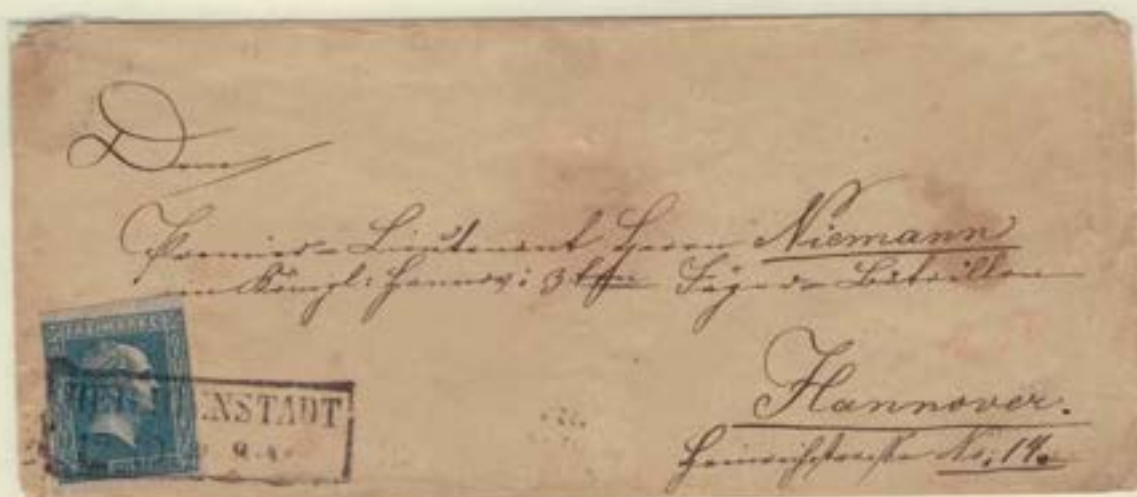 Dem
Premier-Lieutenant Herrn Niemann
im Königl: Hannov: 3ten Jäger-Bataillon
Hannover.
Heinrichstrasse No. 14.
FREIMARKE
ENSTADT